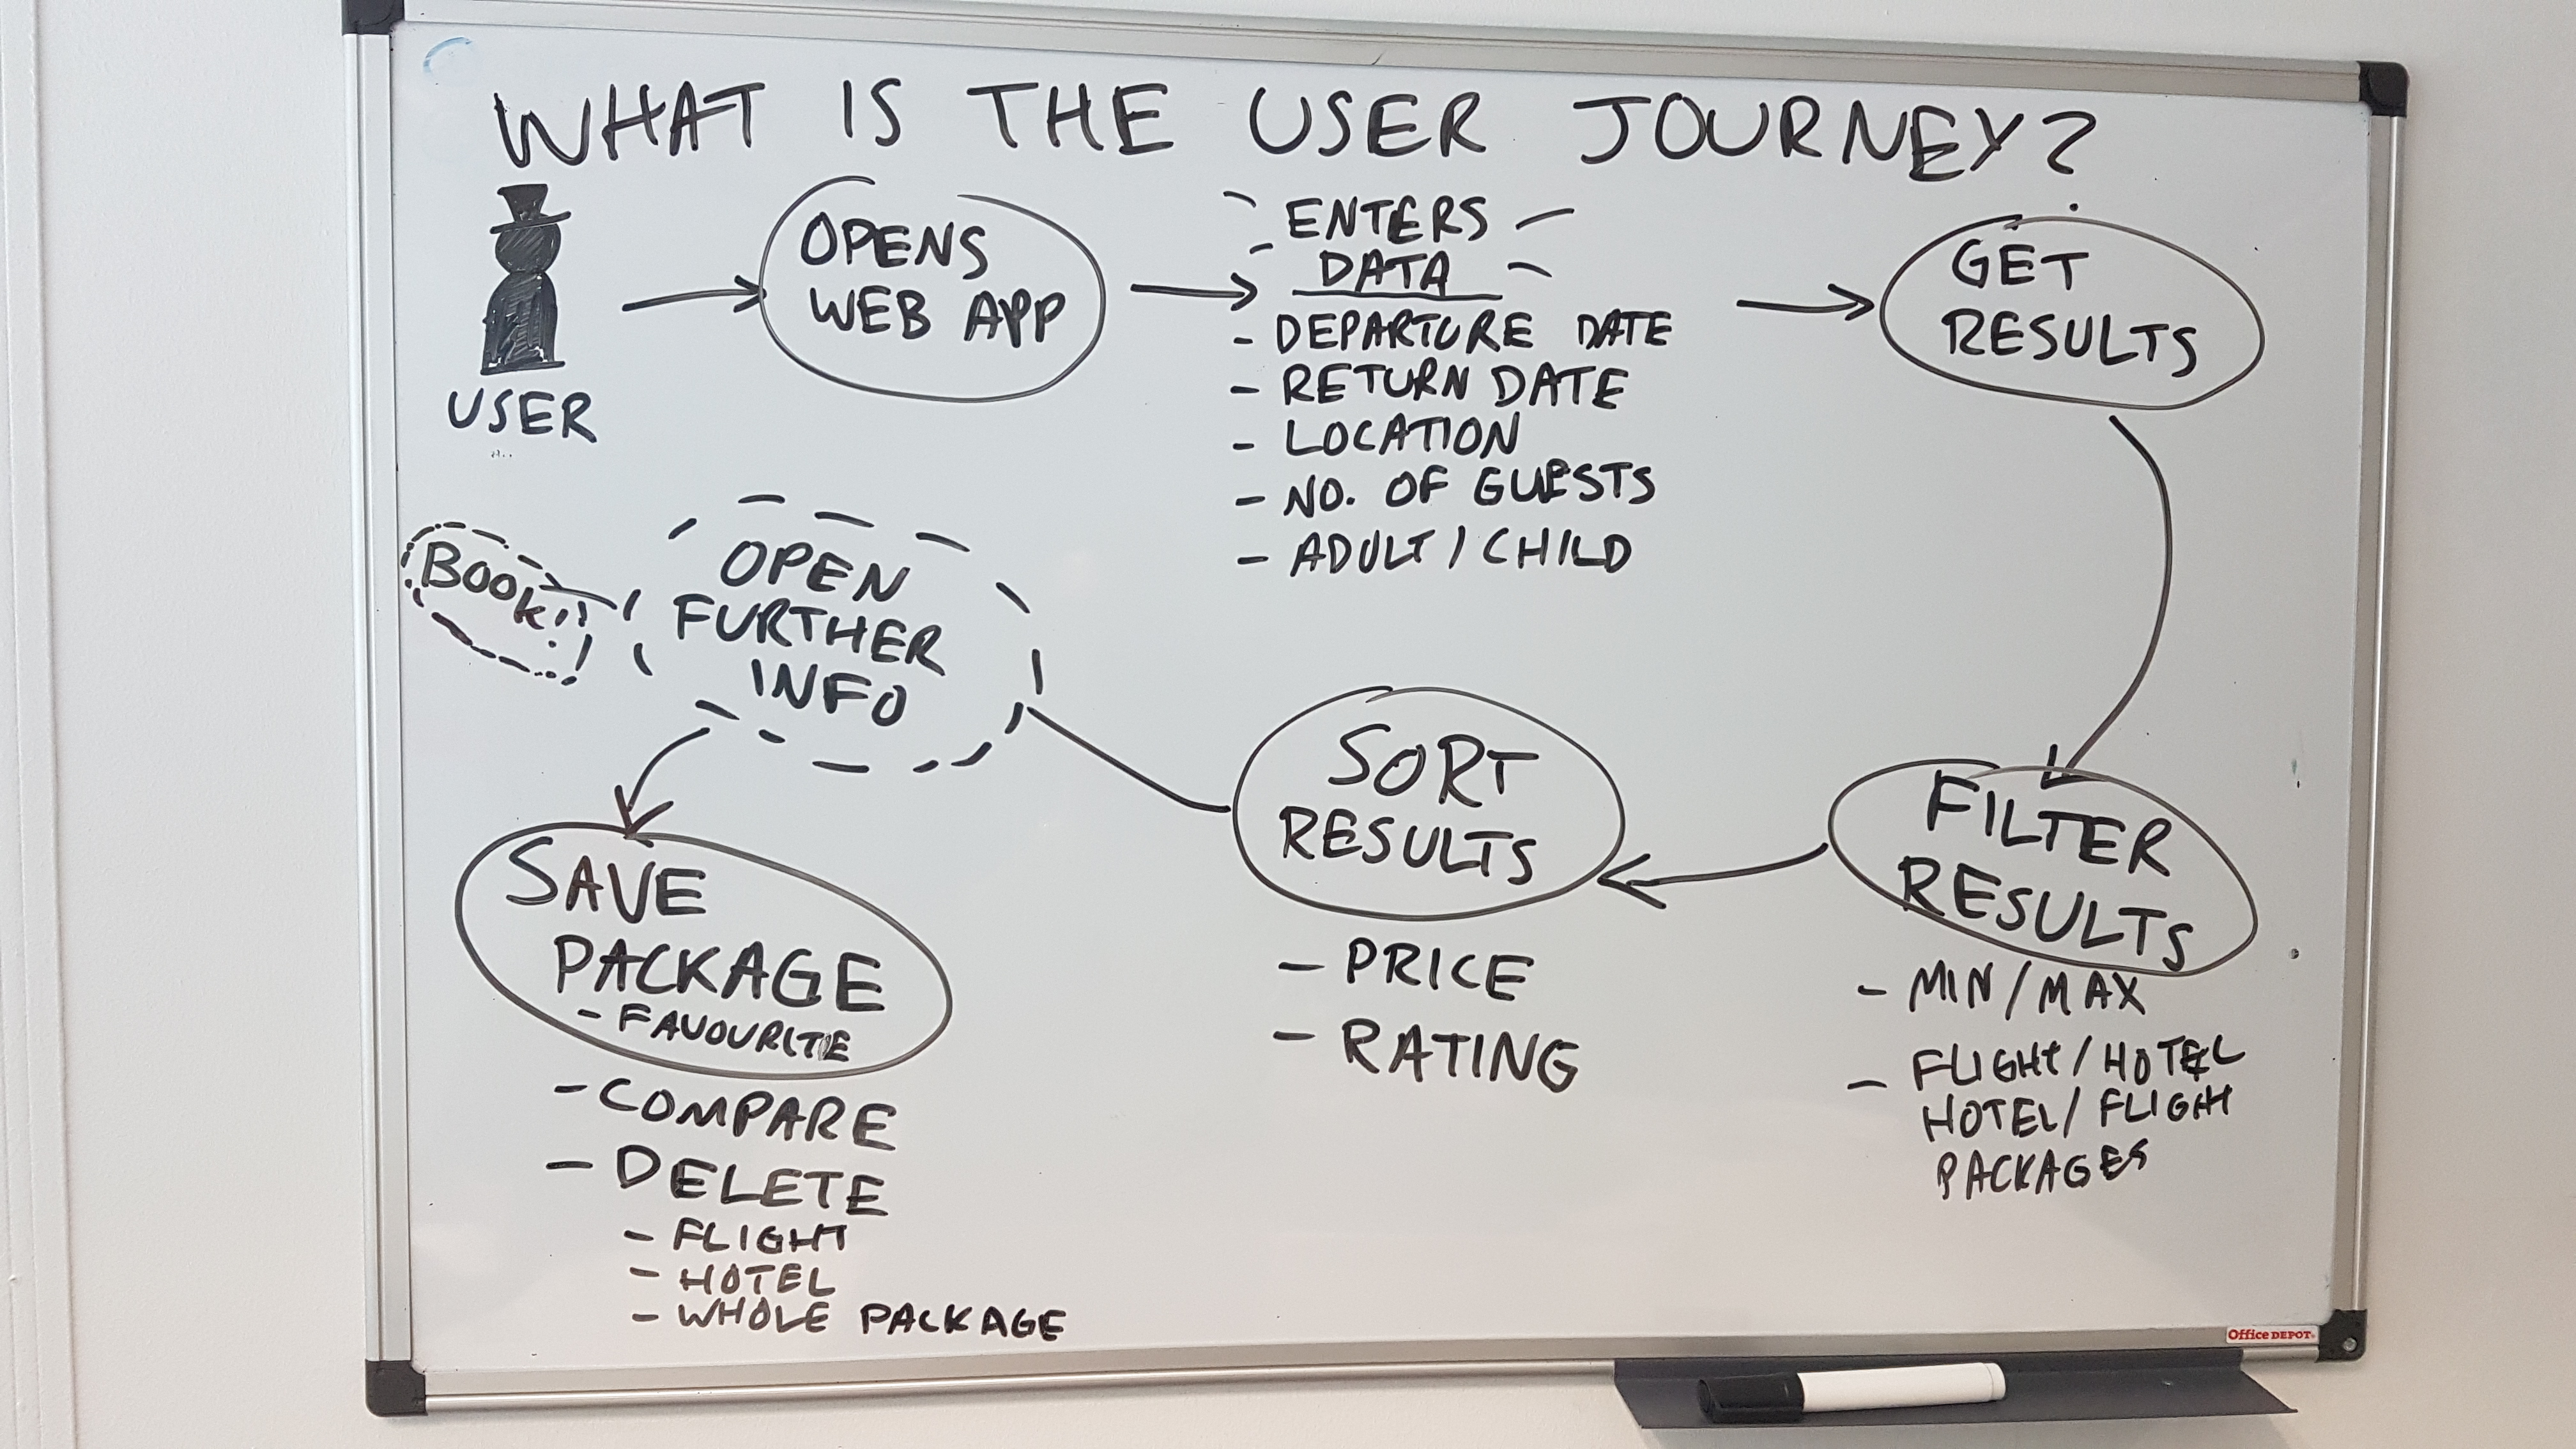 WHAT IS THE USER JOURNEY?
USER
OPENS
WEB APP
ENTERS
DATA
- DEPARTURE DATE
- RETURN DATE
- LOCATION
- NO. OF GUESTS
- ADULT / CHILD
GET
RESULTS
FILTER
RESULTS
- MIN/MAX
- FLIGHT/HOTEL
HOTEL/FLIGHT
PACKAGES
SORT
RESULTS
- PRICE
- RATING
OPEN
FURTHER
INFO
BOOK!!!
SAVE
PACKAGE
- FAVOURITE
- COMPARE
- DELETE
- FLIGHT
- HOTEL
- WHOLE PACKAGE
Office DEPOT